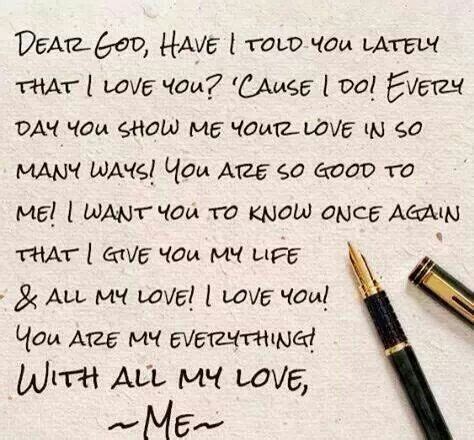 Dear God, Have I told you lately
that I love you? 'Cause I do! Every
day you show me your love in so
many ways! You are so good to
me! I want you to know once again
that I give you my life
& all my love! I love you!
You are my everything!
With all my love,
~Me~